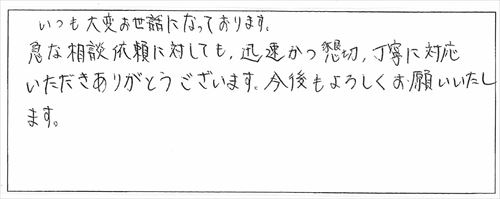 いつも大変お世話になっております。
急な相談依頼に対しても、迅速かつ懇切、丁寧に対応
いただきありがとうございます。今後もよろしくお願いいたし
ます。